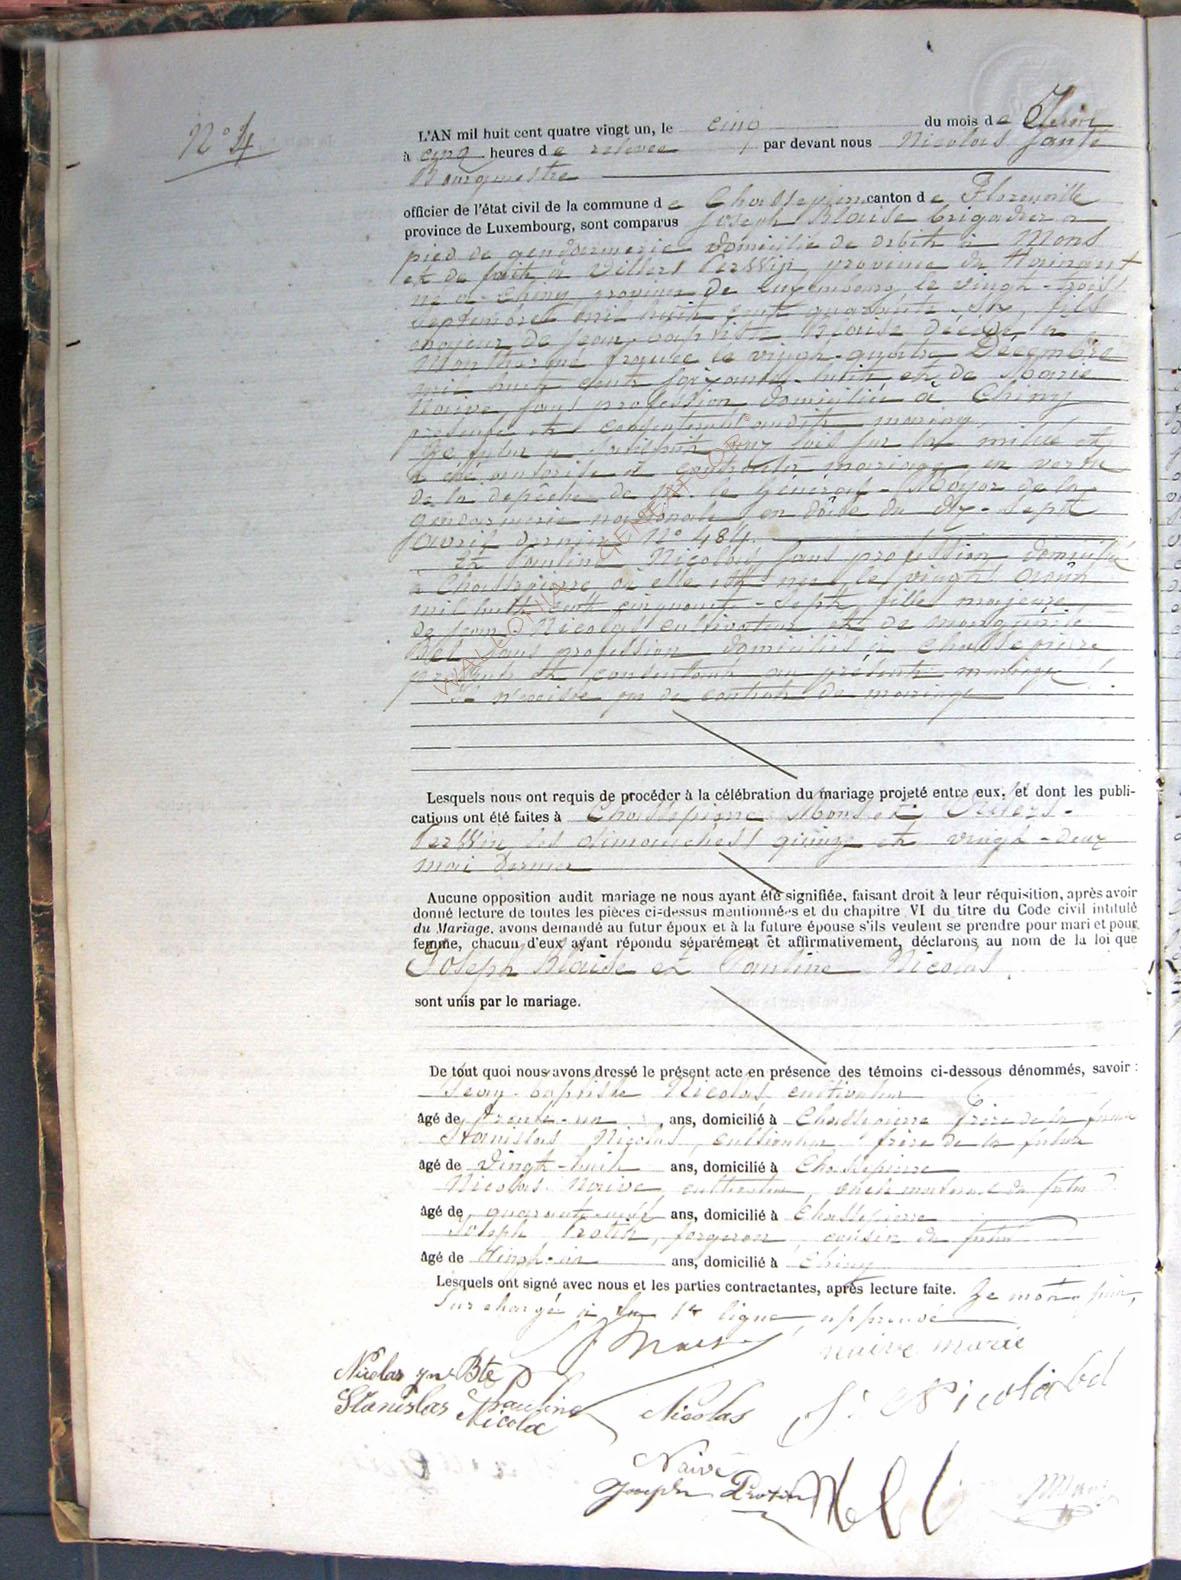 N° 4
L'AN mil huit cent quatre vingt un, le cinq du mois de Juin
à cinq heures de relevée par devant nous Nicolas
Bourgmestre
officier de l'état civil de la commune de Chassepierre canton de Florenville
province de Luxembourg, sont comparus Joseph Blaise brigadier à
pied de gendarmerie domicilié de droit à Mons
et de fait à Villers Perwin, province du Hainaut
né à Chiny province de Luxembourg le vingt-trois
septembre mil huit cent quarante-six, fils
majeur de Jean-baptiste Blaise décédé à
Monthermé France le vingt-quatre Décembre
mil huit cent soixante-huit et de Marie
Naive, sans profession domiciliée à Chiny
présente et consentant audit mariage
Le futur a satisfait aux lois sur la milice et
a été autorisé à contracter mariage en vertu
de la dépêche de M. le Général-Major de la
gendarmerie nationale en date du dix-sept
avril dernier N° 484.
Et Pauline Nicolas sans profession domiciliée
à Chassepierre où elle est née le vingt août
mil huit cent cinquante-sept, fille majeure
de Jean Nicolas cultivateur et de
Bel sans profession domiciliés à Chassepierre
présents et consentant au présent mariage
Il n'existe pas de contrat de mariage
Lesquels nous ont requis de procéder à la célébration du mariage projeté entre eux, et dont les publi-
cations ont été faites à Chassepierre Mons et Villers-
Perwin les dimanches quinze et vingt-deux
mai dernier
Aucune opposition audit mariage ne nous ayant été signifiée, faisant droit à leur réquisition, après avoir
donné lecture de toutes les pièces ci-dessus mentionnées et du chapitre VI du titre du Code civil intitulé
du Mariage, avons demandé au futur époux et à la future épouse s'ils veulent se prendre pour mari et pour
femme, chacun d'eux ayant répondu séparément et affirmativement, déclarons au nom de la loi que
Joseph Blaise et Pauline Nicolas
sont unis par le mariage.
De tout quoi nous avons dressé le présent acte en présence des témoins ci-dessous dénommés, savoir :
Jean-baptiste Nicolas, cultivateur
âgé de trente-un ans, domicilié à Chassepierre frère de la future
Stanislas Nicolas, cultivateur frère de la future
âgé de vingt-huit ans, domicilié à Chassepierre
Nicolas Naive, cultivateur, oncle maternel du futur
âgé de quarante-neuf ans, domicilié à Chassepierre
Joseph Protin, forgeron, cousin du futur
âgé de Vingt-un ans, domicilié à Chiny
Lesquels ont signé avec nous et les parties contractantes, après lecture faite. Le mot juin,
surchargé à la 1re ligne, approuvé
naive marie
Nicolas Jn Bte
Stanislas Nicolas
Pauline Nicolas
Naive
Joseph Protin